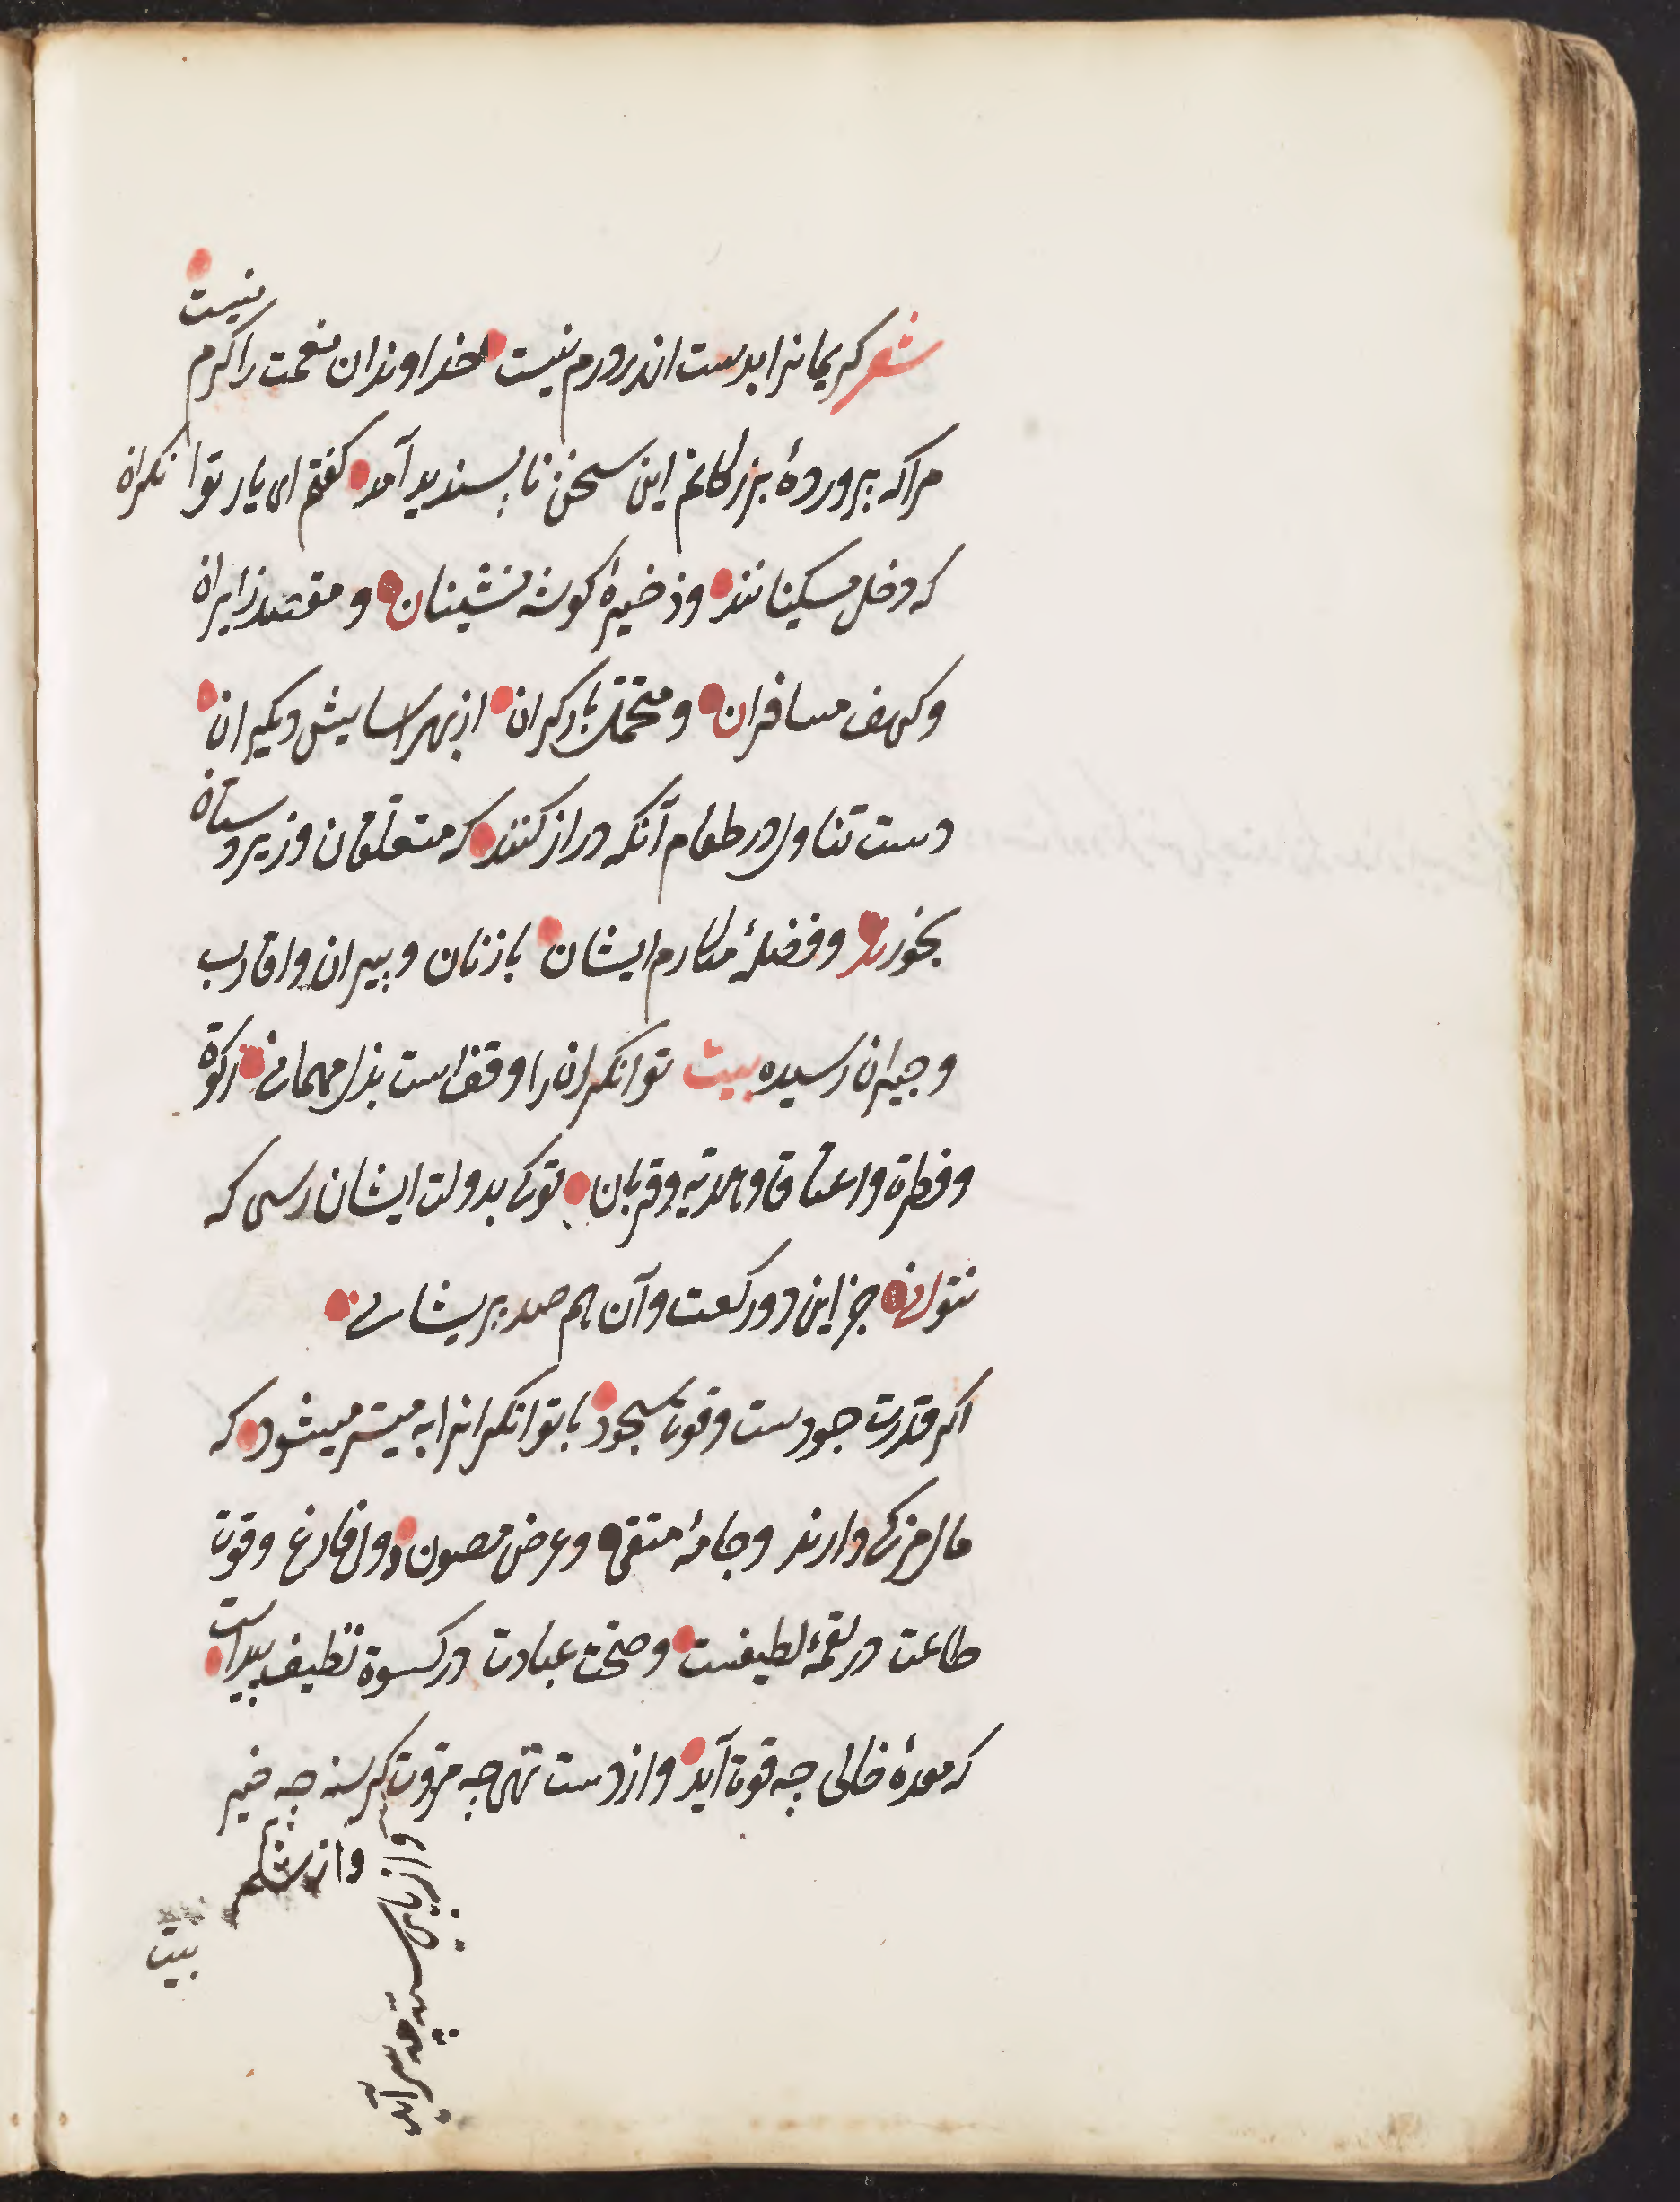 شعر کریمانرا بدست اندر ورم نیست خداوندان نعمت را کرم نیست
مرا که پروردهٔ بزرکانم این سخن ناپسندید آمد کفتم ای یار توانکران
که دخل مسکینانند و ذخیرهٔ کوشه نشینان و مقصد زایران
و کهف مسافران و متحمّل بار کران از بهر اسایش دیکیران
دست تناول در طعام آنکه دراز کنند که متعلقان و زیردستان
بخورند و فضلهٔ مکارم ایشان بازنان و پیران و اقارب
و جیران رسیده بیت توانکران را وقف است بذل مهمانی زکوة
و فطره و اعتاق و هدیه و قربان توکی بدولت ایشان رسی که
نتوانی جز این دو رکعت و آن هم صد پریشانی
اکر قدرت جودست و قوت سجود با توانکرانرا به میسّر میشود که
مال مزکی دارند و جامهٔ متقی و عرض مصون و دل فارغ و قوت
طاعت در لقمهٔ لطیفست و صحت عبادت در کسوة نظیف پیداست
که معدهٔ خالی چه قوت آید و از دست تهی چه مروت کرسنه چه خیر
و از پای بسته چه سیر آید
و از شکم
بیت